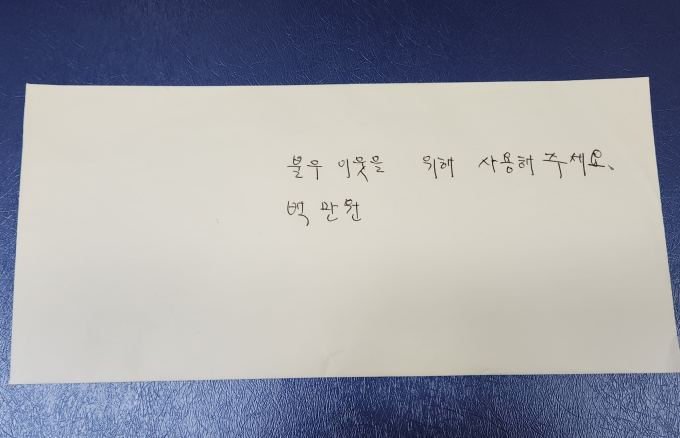 불우 이웃을 위해 사용해 주세요.
백 만원